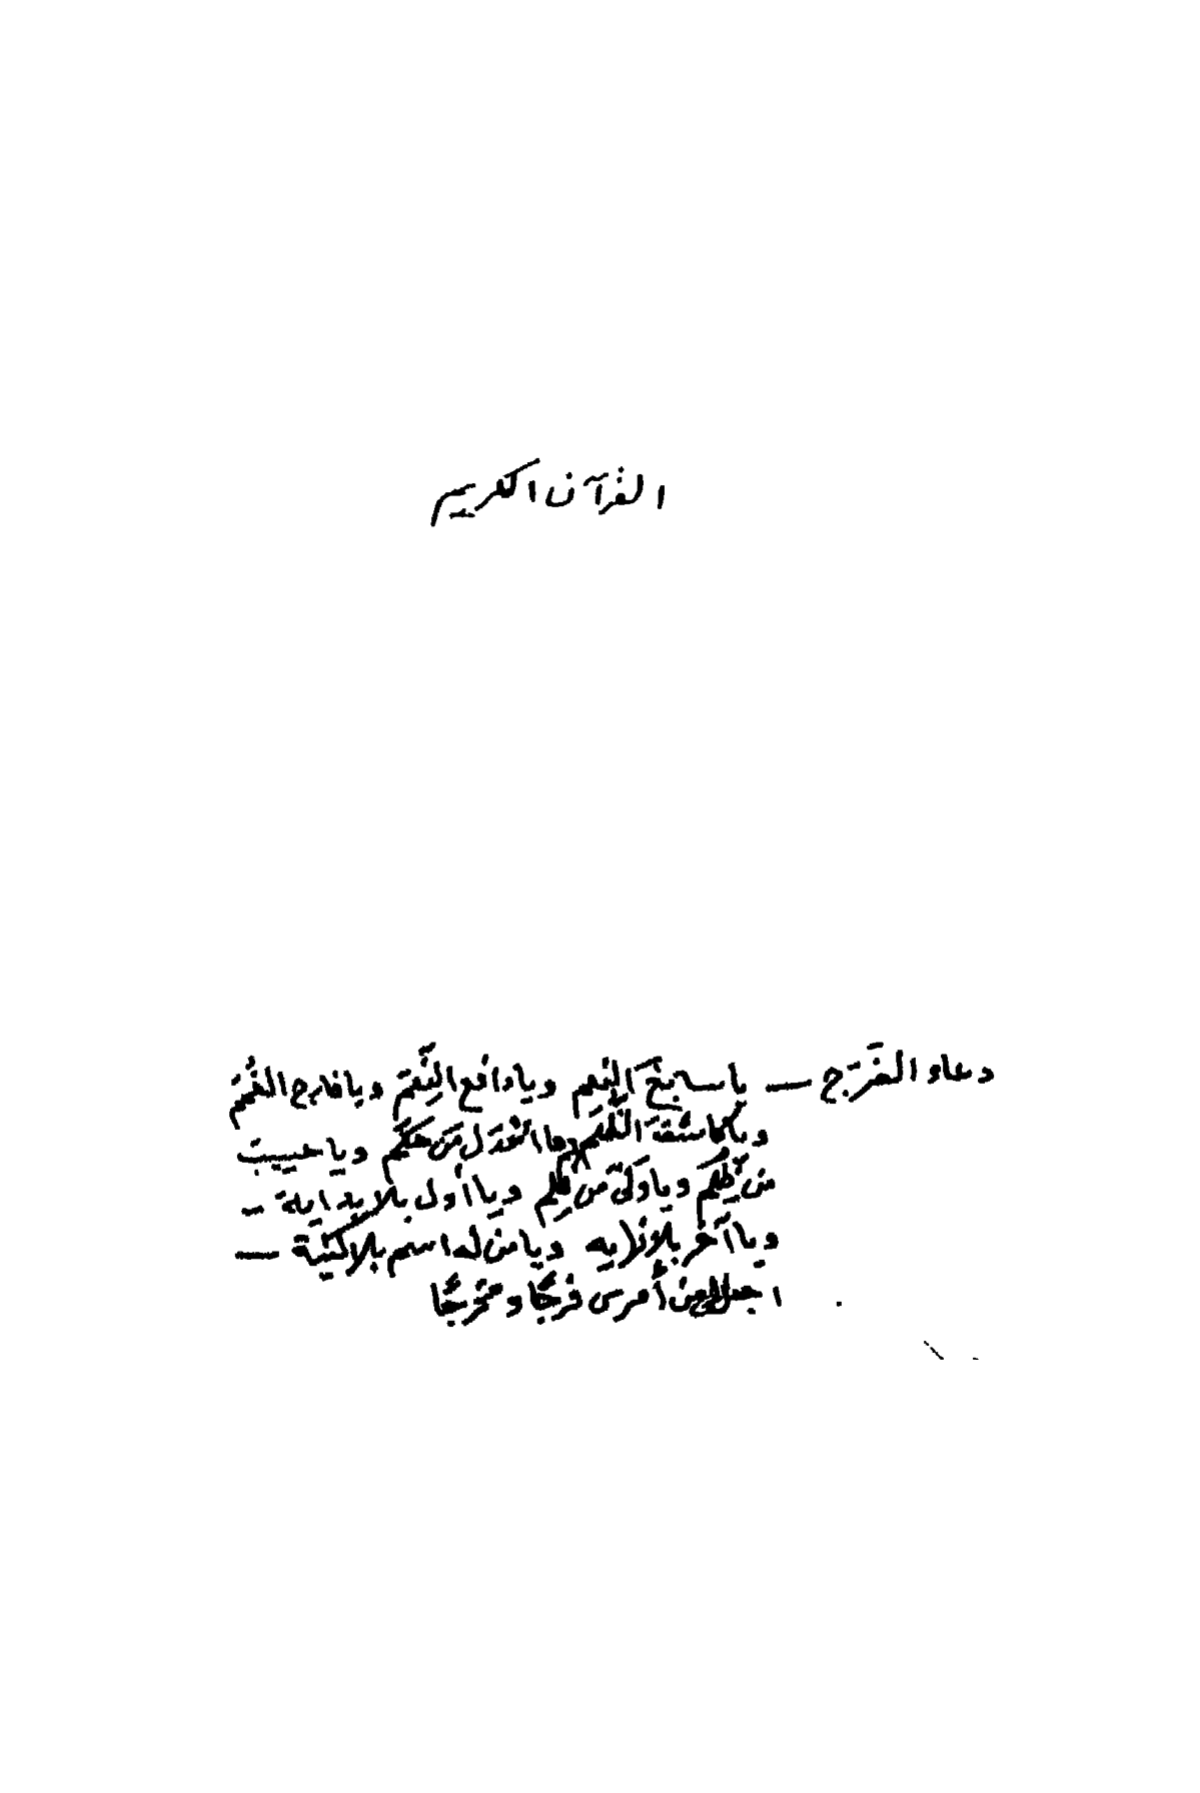 القرآن الكريم
دعاء الفَرَج — يا سابغَ النِعم ويا دافع النِّقَم ويا فارج الغُمَم
ويا كاشفَ الظُّلَم ويا أعدَل مَن حَكَم ويا حسيبَ
من ظلَم ويا وَليّ مَن ظُلِم ويا أول بلا بداية –
ويا آخر بلا نهاية ويا من له اسم بلا كنيَة —
اجعل لي من أمري فرجًا ومخرجًا